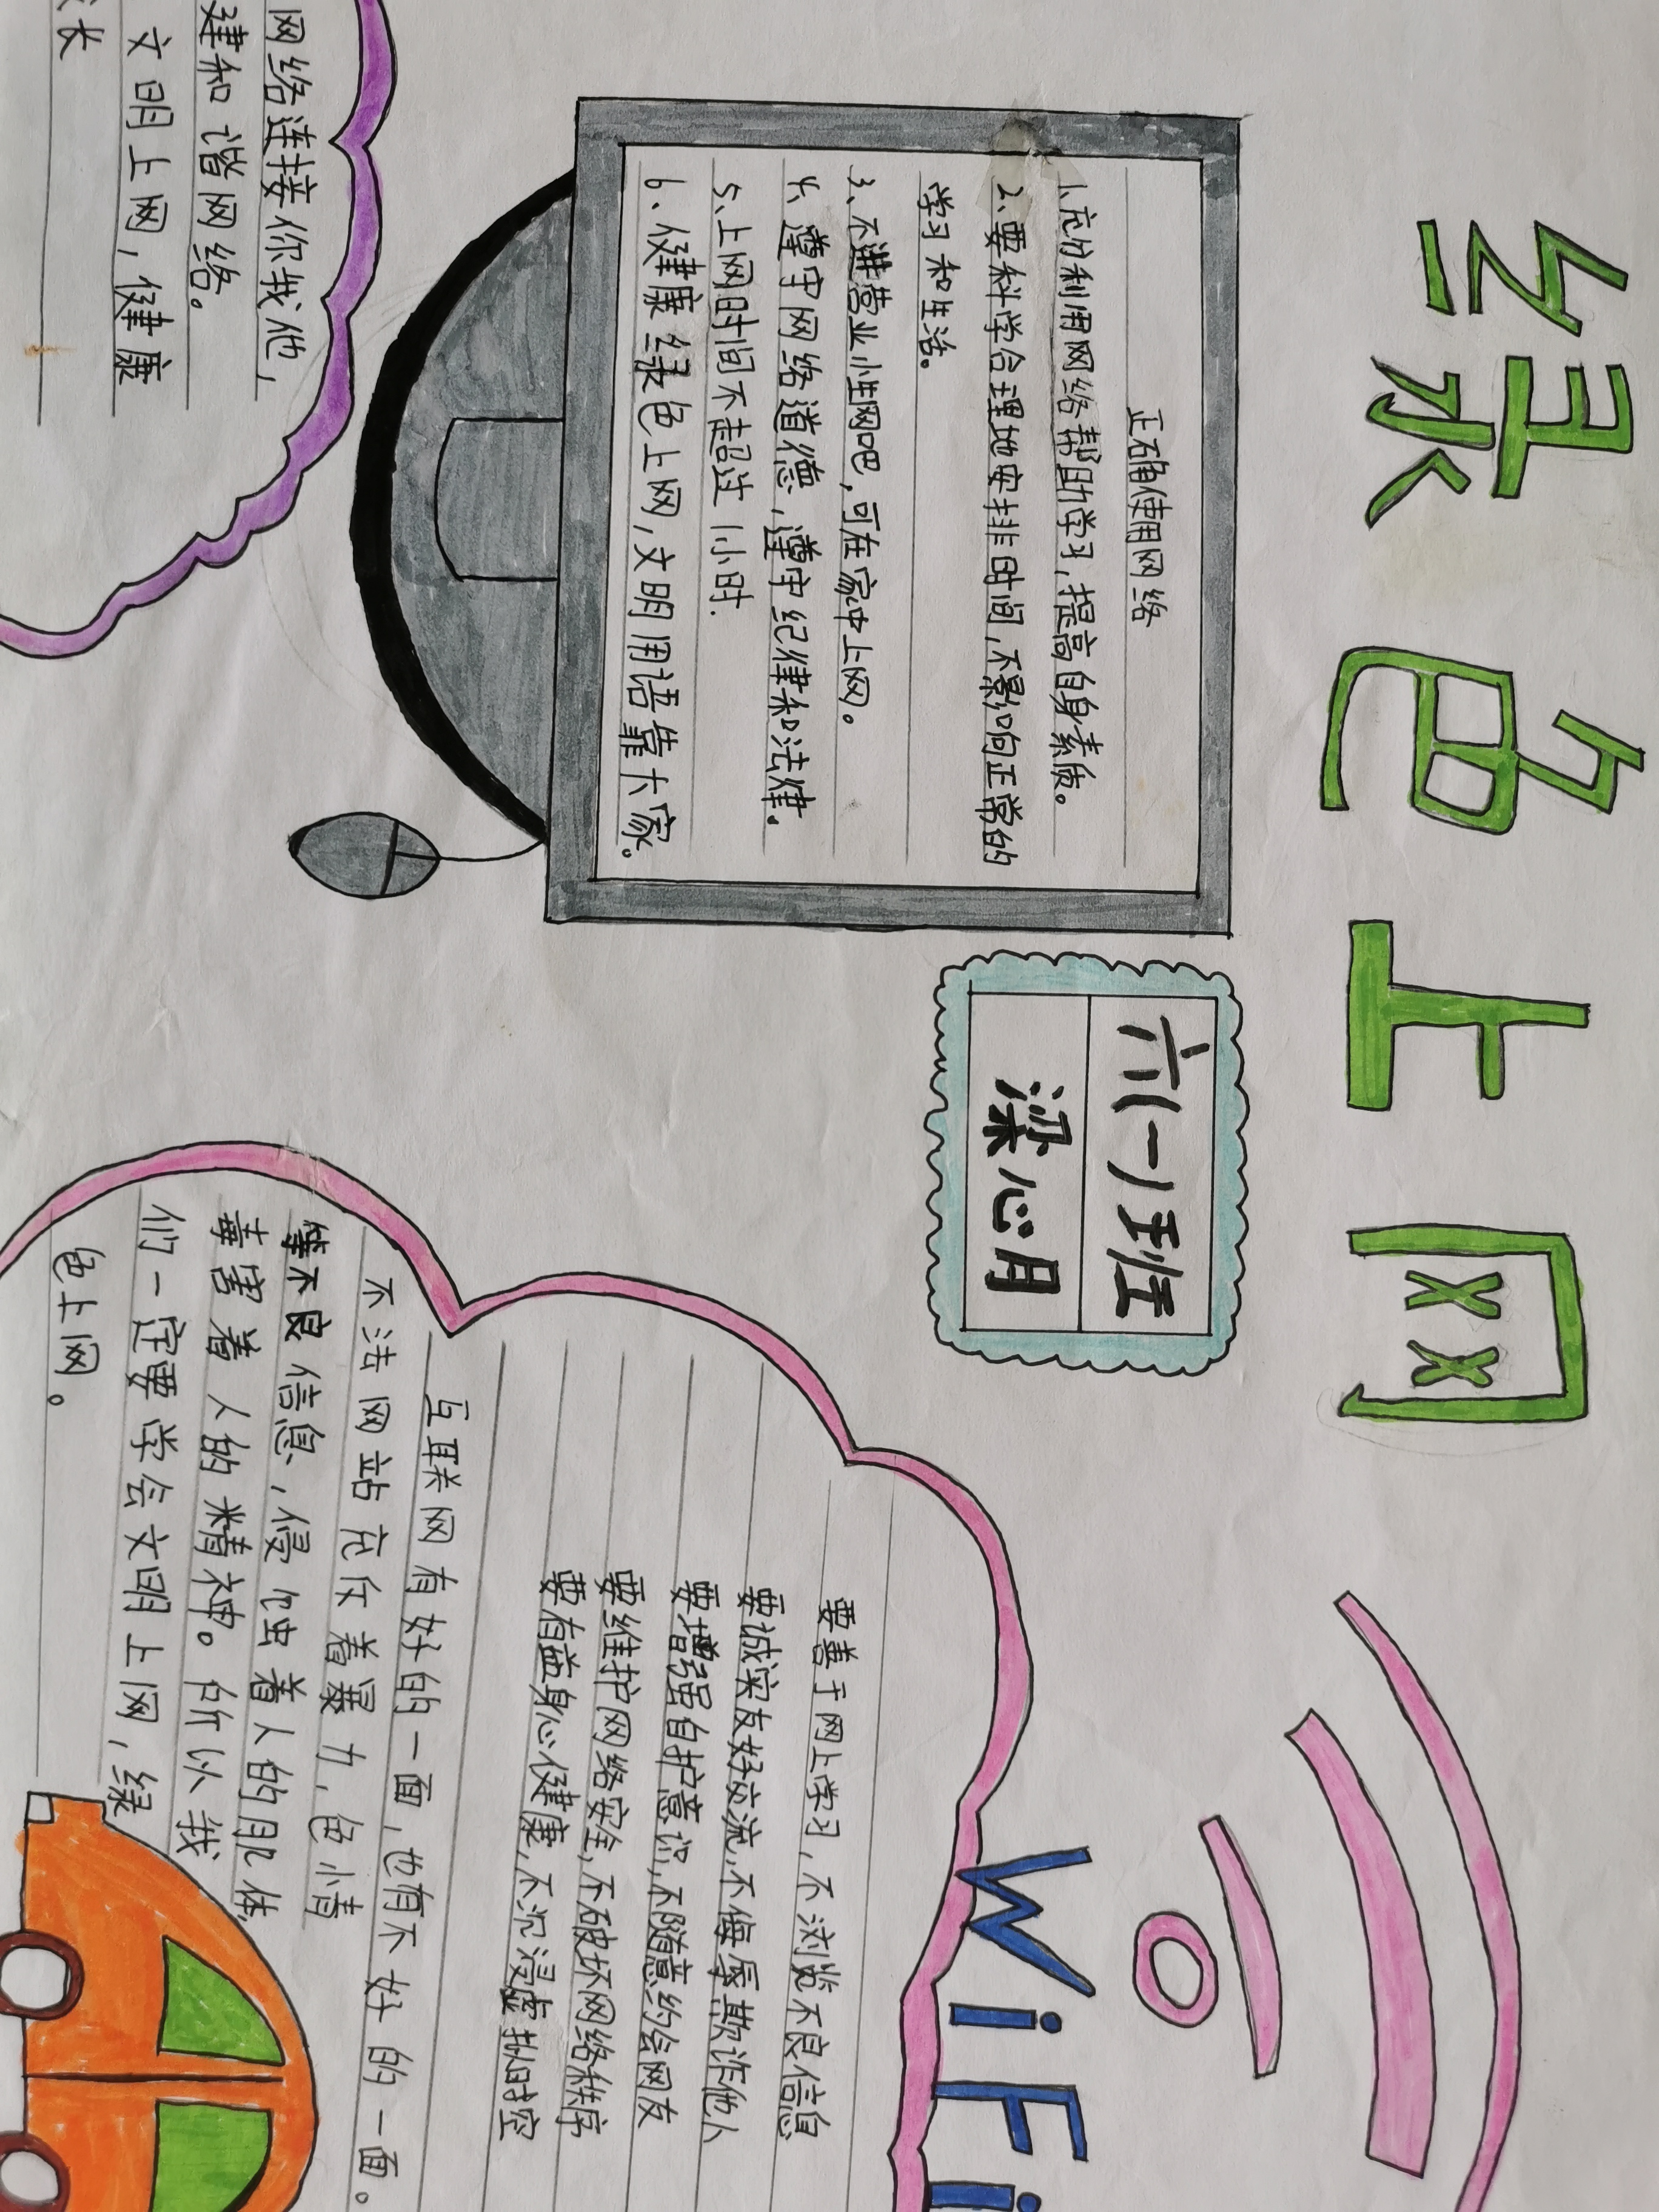 绿色上网
正确使用网络
1.充分利用网络帮助学习,提高自身素质。
2.要科学合理地安排时间,不影响正常的
学习和生活。
3、不进营业性网吧,可在家中上网。
4、遵守网络道德,遵守纪律和法律。
5、上网时间不超过1小时.
6、健康绿色上网,文明用语靠大家。
六(一)班
梁心月
WiFi
网络连接你我他,
建和谐网络。
文明上网,健康
长
要善于网上学习,不浏览不良信息
要诚实友好交流,不侮辱欺诈他人
要增强自护意识,不随意约会网友
要维护网络安全,不破坏网络秩序
要有益身心健康,不沉浸虚拟时空
互联网有好的一面,也有不好的一面。
不法网站充斥着暴力,色情
等不良信息,侵蚀着人的肌体,
毒害着人的精神。所以我
们一定要学会文明上网,绿
色上网。